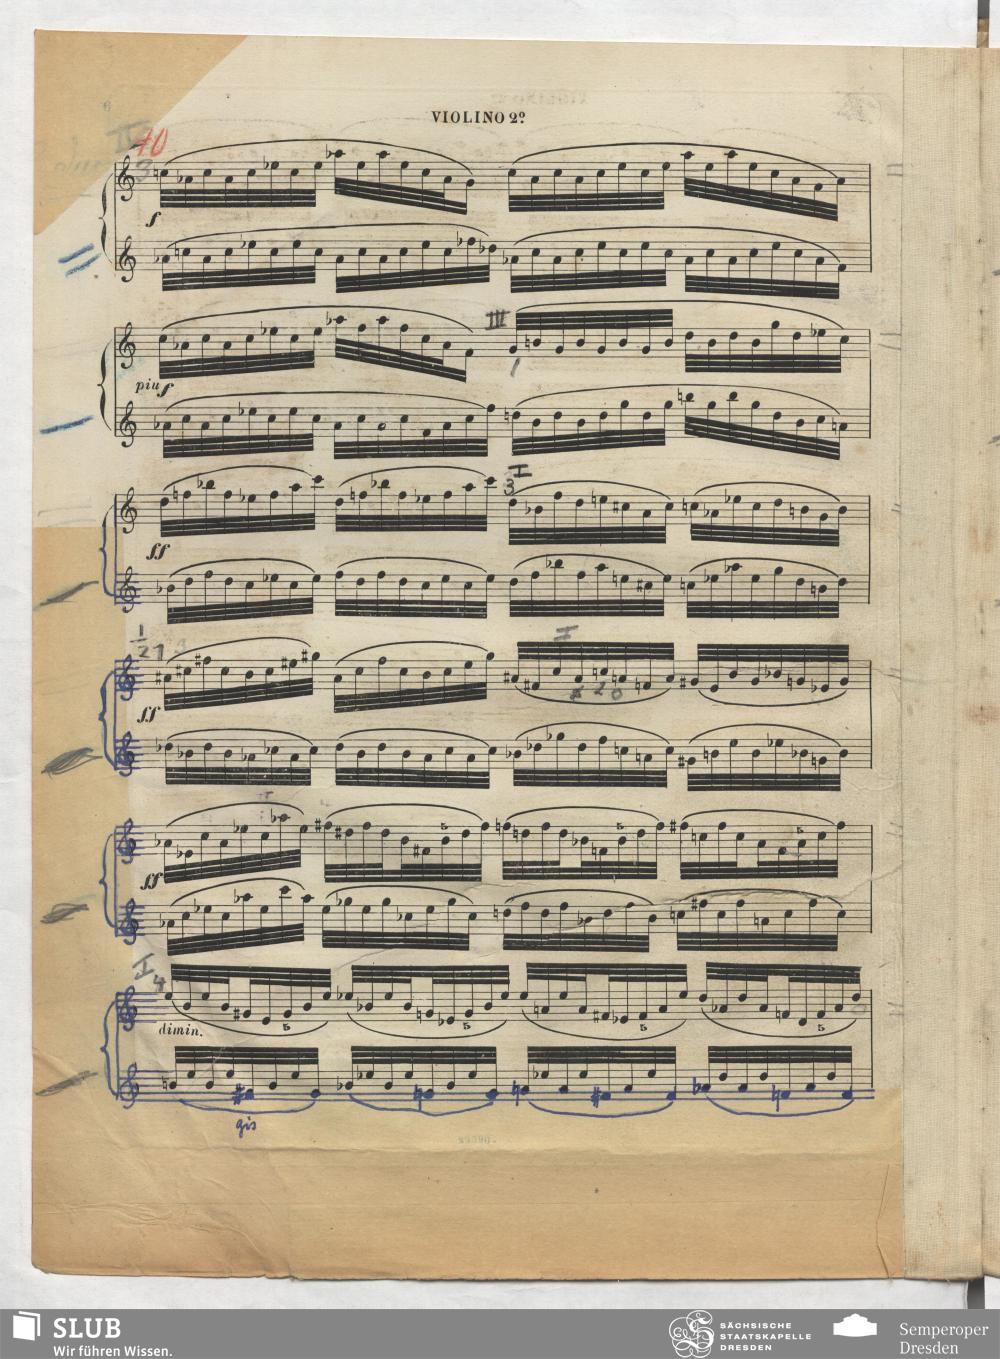 VIOLINO 2º
II
10
3
f
più f
III
1
ff
3 I
1
2 1 3
ff
I
2 0
ff
5
5
5
I
4
dimin.
5
5
5
5
0
gis
SLUB
Wir führen Wissen.
SÄCHSISCHE
STAATSKAPELLE
DRESDEN
Semperoper
Dresden